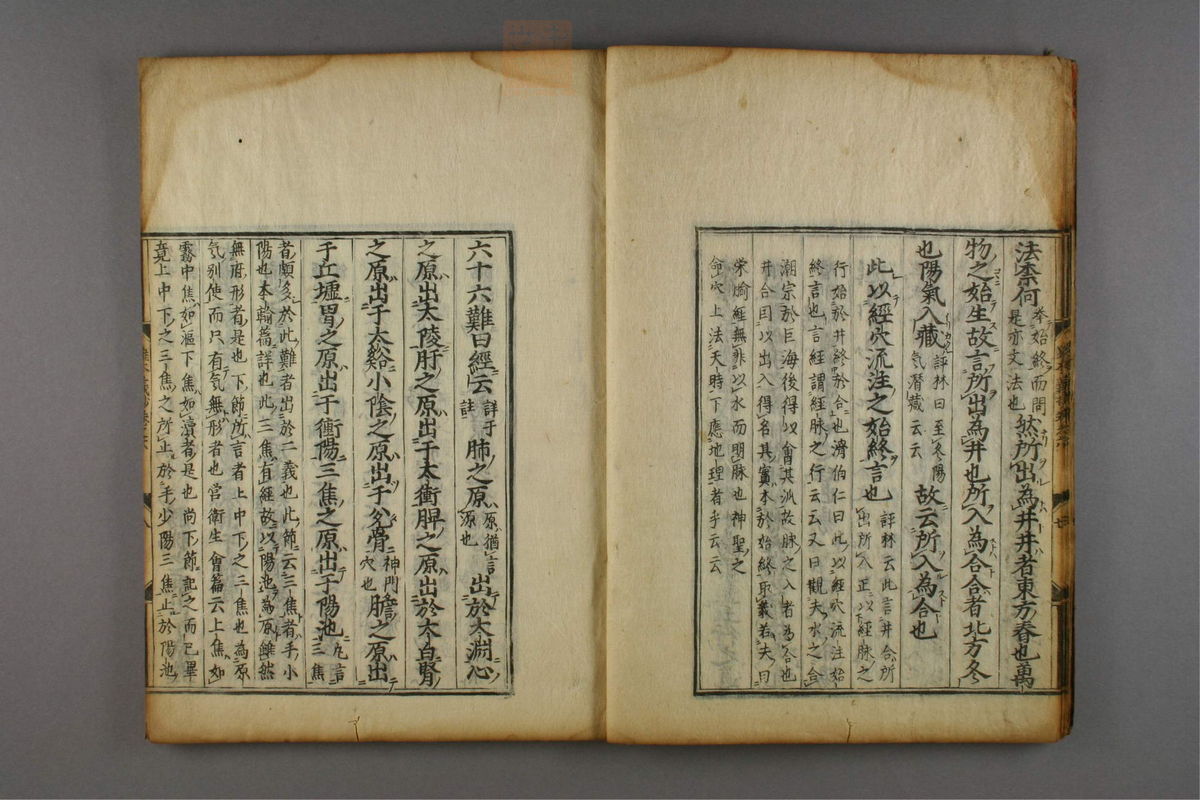 法奈何 挙始終而問是亦文法也 然所出為井井者東方春也萬
物之始生故言所出為井也所入為合合者北方冬
也陽氣入藏 評林曰至冬陽気潛藏云云 故云所入為合也
此以經穴流注之始終言也 評林云此言井合所出所入正以經脉之
行始於井終於合也滑伯仁曰此以經穴流注始
終言也言經謂經脉之行云云又曰觀夫水之合
潮宗於巨海後得以會其派故脉之入者為合也
井合因以出入得名其實本於始終取義若夫曰
栄兪經無非以水而明脉也神聖之
命穴上法天時下應地理者乎云云
六十六難曰經云 詳于註 肺之原 原猶言源也 出於太淵心
之原出太陵肝之原出于太衝脾之原出於太白腎
之原出于太谿小陰之原出于兌骨 神門穴也 膽之原出
于丘墟胃之原出于衝陽三焦之原出于陽池 凡言三焦
者頗多於此難者出於二義也此節云三焦者手小
陽也本輸篇詳也此三焦有經故以陽池為原雖然
無府形者是也下節所言者上中下之三焦也為原
気別使而只有気無形者也営衛生會篇云上焦如
霧中焦如漚下焦如瀆者是也尚下節記之而已畢
竟上中下之三焦之所止於手少陽三焦止於陽池